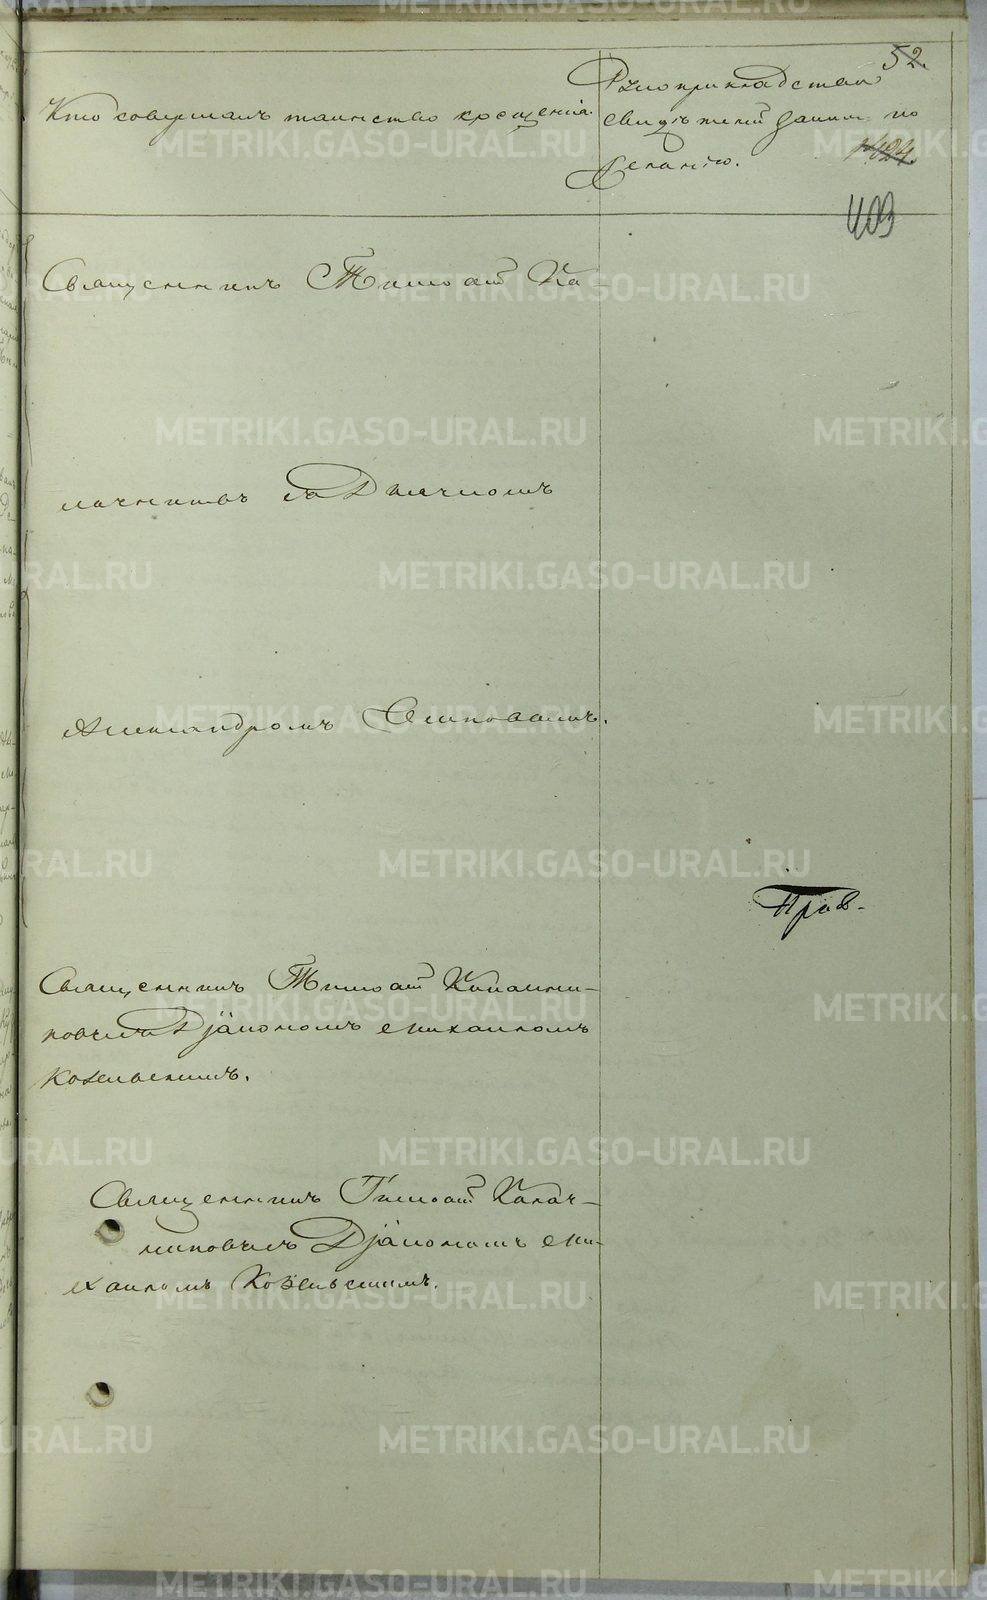 52.
Кто совершалъ таинство крещенія.
Рукоприкладство
свидѣтелей записи по
желанію.
124.
403
Священникъ Тимоѳей Ка-
лачниковъ съ Дьячкомъ
Александромъ Осиповымъ.
Прав-
Священникъ Тимоѳей
съ Діакономъ Михаиломъ
Козельскимъ.
Священникъ Тимоѳей Калач-
никовъ съ Діакономъ Ми-
хаиломъ Козельскимъ.
METRIKI.GASO-URAL.RU